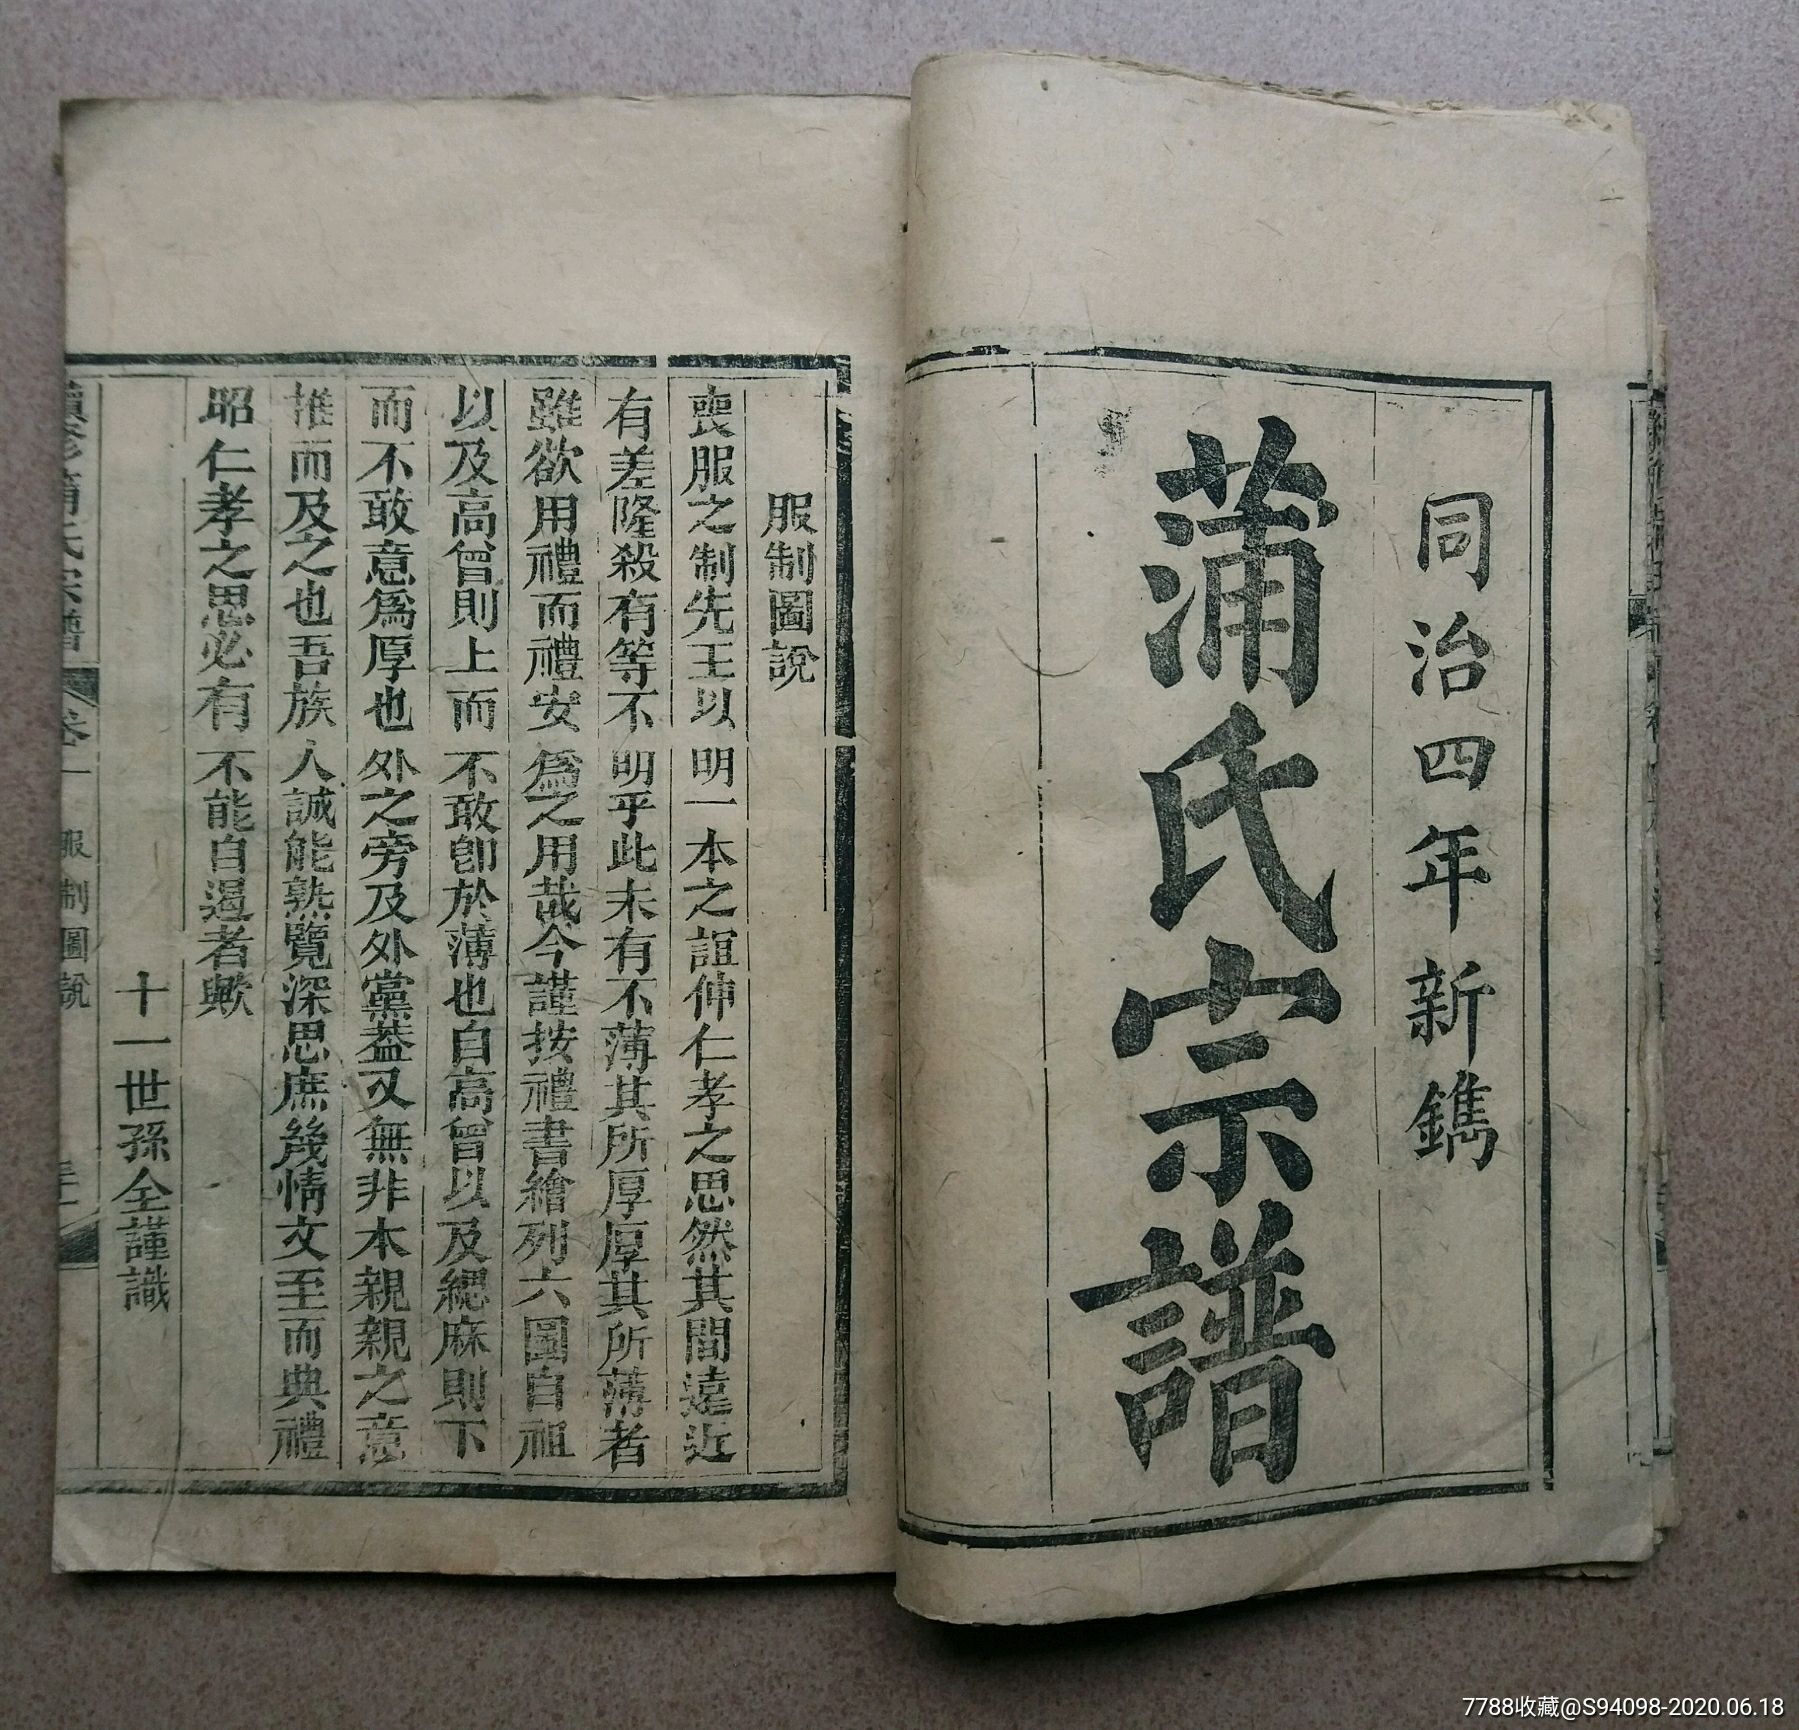 同治四年新鐫
蒲氏宗譜
服制圖說
喪服之制先王以明一本之誼伸仁孝之思然其間遠近
有差隆殺有等不明乎此未有不薄其所厚厚其所薄者
雖欲用禮而禮安爲之用哉今謹按禮書繪列六圖自祖
以及高曾則上而不敢卽於薄也自高曾以及緦麻則下
而不敢意爲厚也外之旁及外黨葢又無非本親親之意
推而及之也吾族人誠能熟覽深思庶幾情文至而典禮
昭仁孝之思必有不能自遏者歟
十一世孫全謹識
續修蒲氏宗譜 卷一 服制圖說
7788收藏@S94098-2020.06.18